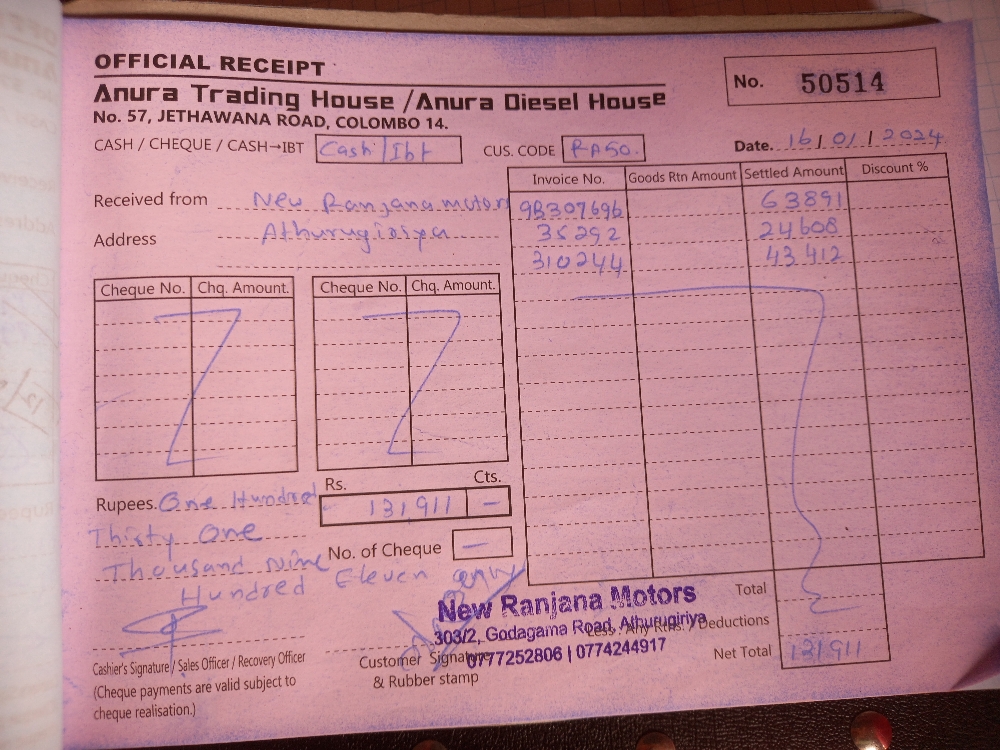 OFFICIAL RECEIPT
Anura Trading House / Anura Diesel House
No. 57, JETHAWANA ROAD, COLOMBO 14.
No. 50514
CASH / CHEQUE / CASH→IBT Cash/Ibt CUS. CODE RA50. Date. 16/01/2024
Received from New Ranjana motors
Address Athurugiriya
Invoice No. Goods Rtn Amount Settled Amount Discount %
9B307696 63891
35292 24608
310244 43412
Cheque No. Chq. Amount. Cheque No. Chq. Amount.
Rs. Cts.
131911 —
Rupees. One Hundred
Thirty One
Thousand Nine
Hundred Eleven only
No. of Cheque —
Total
Less : Any Rtns. / Deductions
Net Total 131911
New Ranjana Motors
303/2, Godagama Road, Athurugiriya
0777252806 | 0774244917
Cashier's Signature / Sales Officer / Recovery Officer
(Cheque payments are valid subject to
cheque realisation.)
Customer Signature
& Rubber stamp